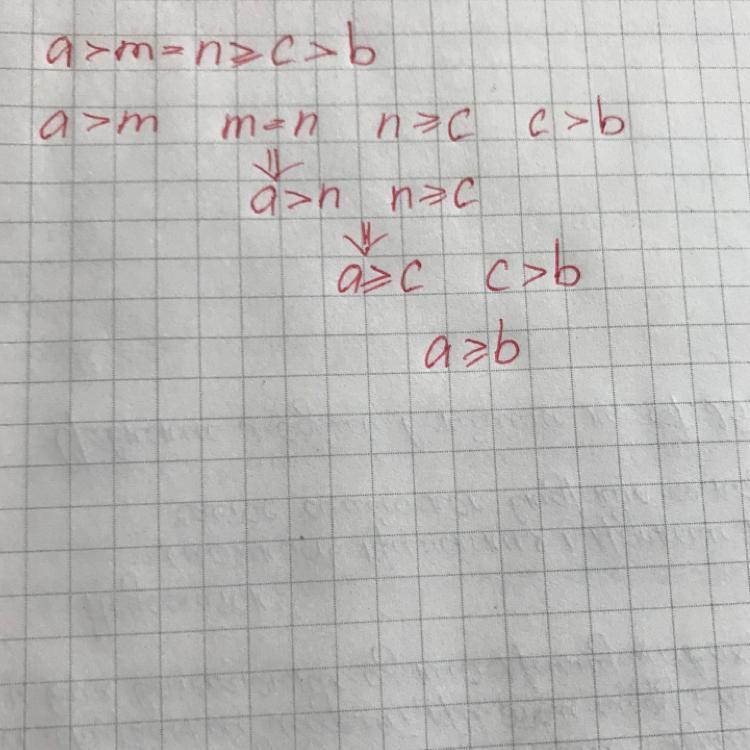 a > m = n ⩾ c > b
a > m   m = n   n ⩾ c   c > b
⇓
a > n   n ⩾ c
⇓
a ⩾ c   c > b
a ⩾ b